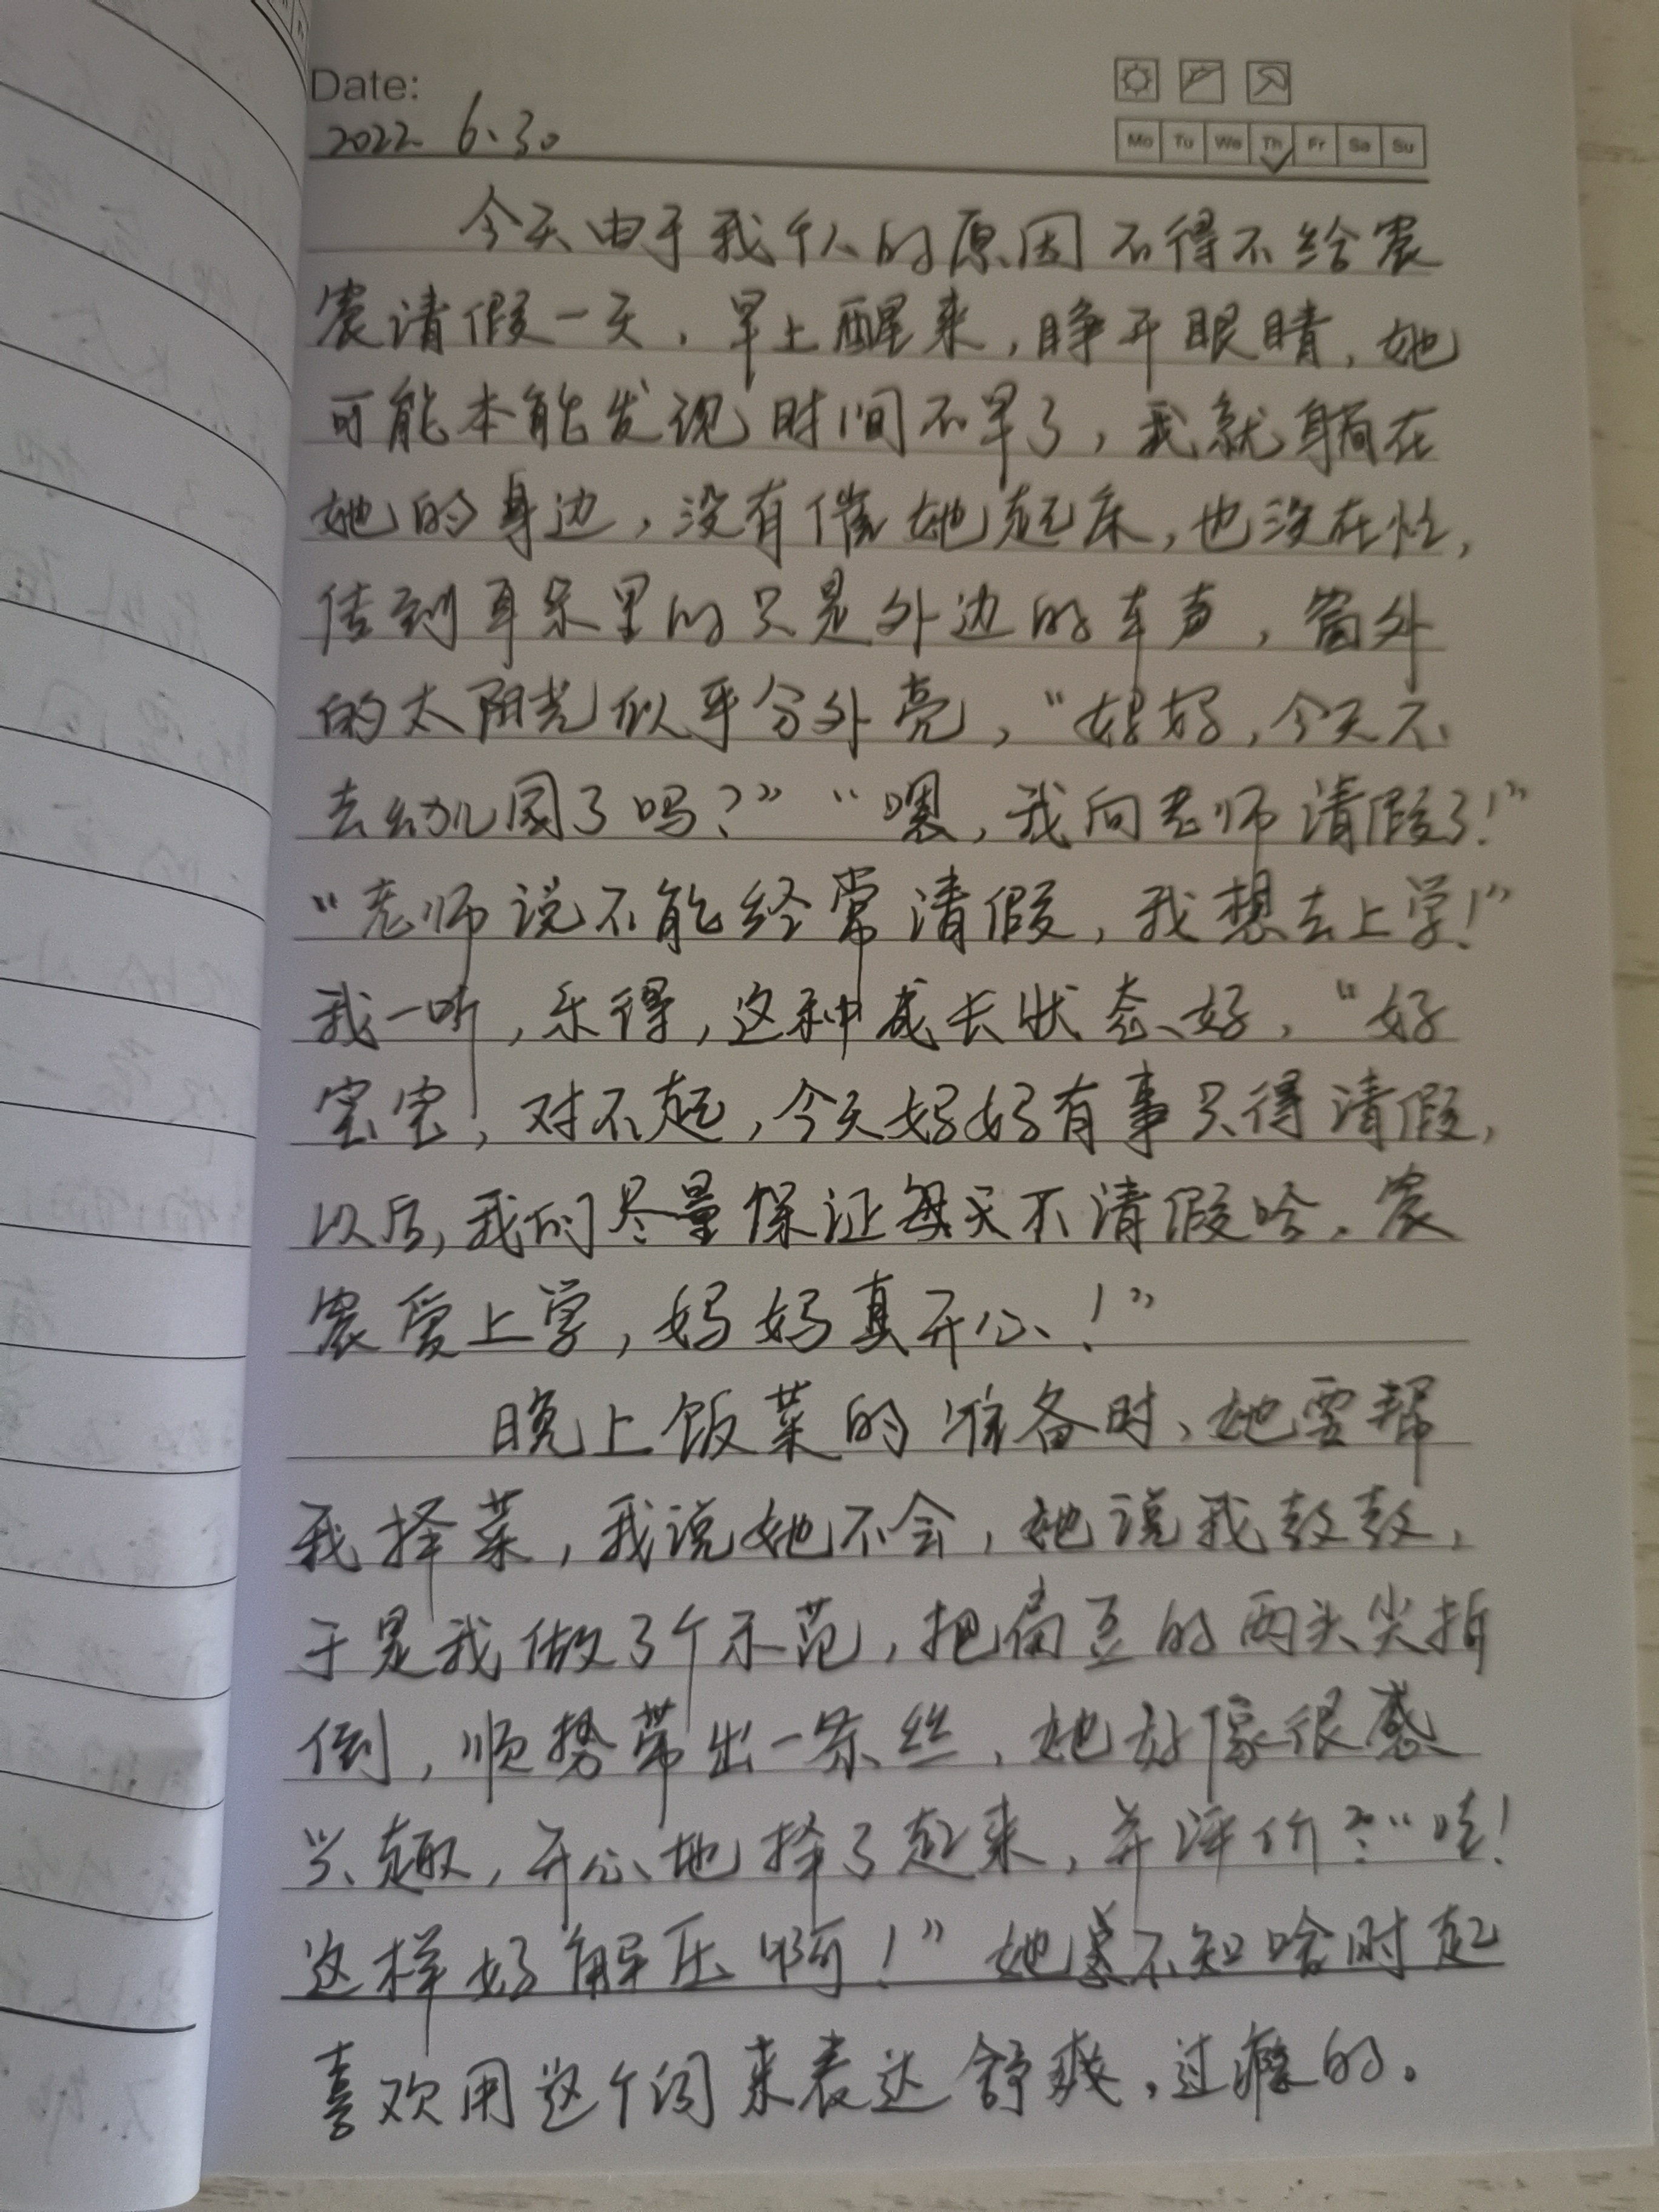 Date:
2022 6.30
Mo Tu We Th Fr Sa Su
今天由于我个人的原因不得不给宸
宸请假一天，早上醒来，睁开眼睛，她
可能本能发现时间不早了，我就躺在
她的身边，没有催她起床，也没在忙，
传到耳朵里的只是外边的车声，窗外
的太阳光似乎分外亮，“妈妈，今天不
去幼儿园了吗？”“嗯，我向老师请假了！”
“老师说不能经常请假，我想去上学！”
我一听，乐得，这种成长状态好，“好
宝宝，对不起，今天妈妈有事只得请假，
以后，我们尽量保证每天不请假哈，宸
宸爱上学，妈妈真开心！”
晚上饭菜的准备时，她要帮
我择菜，我说她不会，她说我教教，
于是我做了个示范，把扁豆的两头尖折
倒，顺势带出一条丝，她好像很感
兴趣，开心地择了起来，并评价：“哇！
这样好解压啊！”她不知啥时起
喜欢用这个词来表达舒爽，过瘾的。